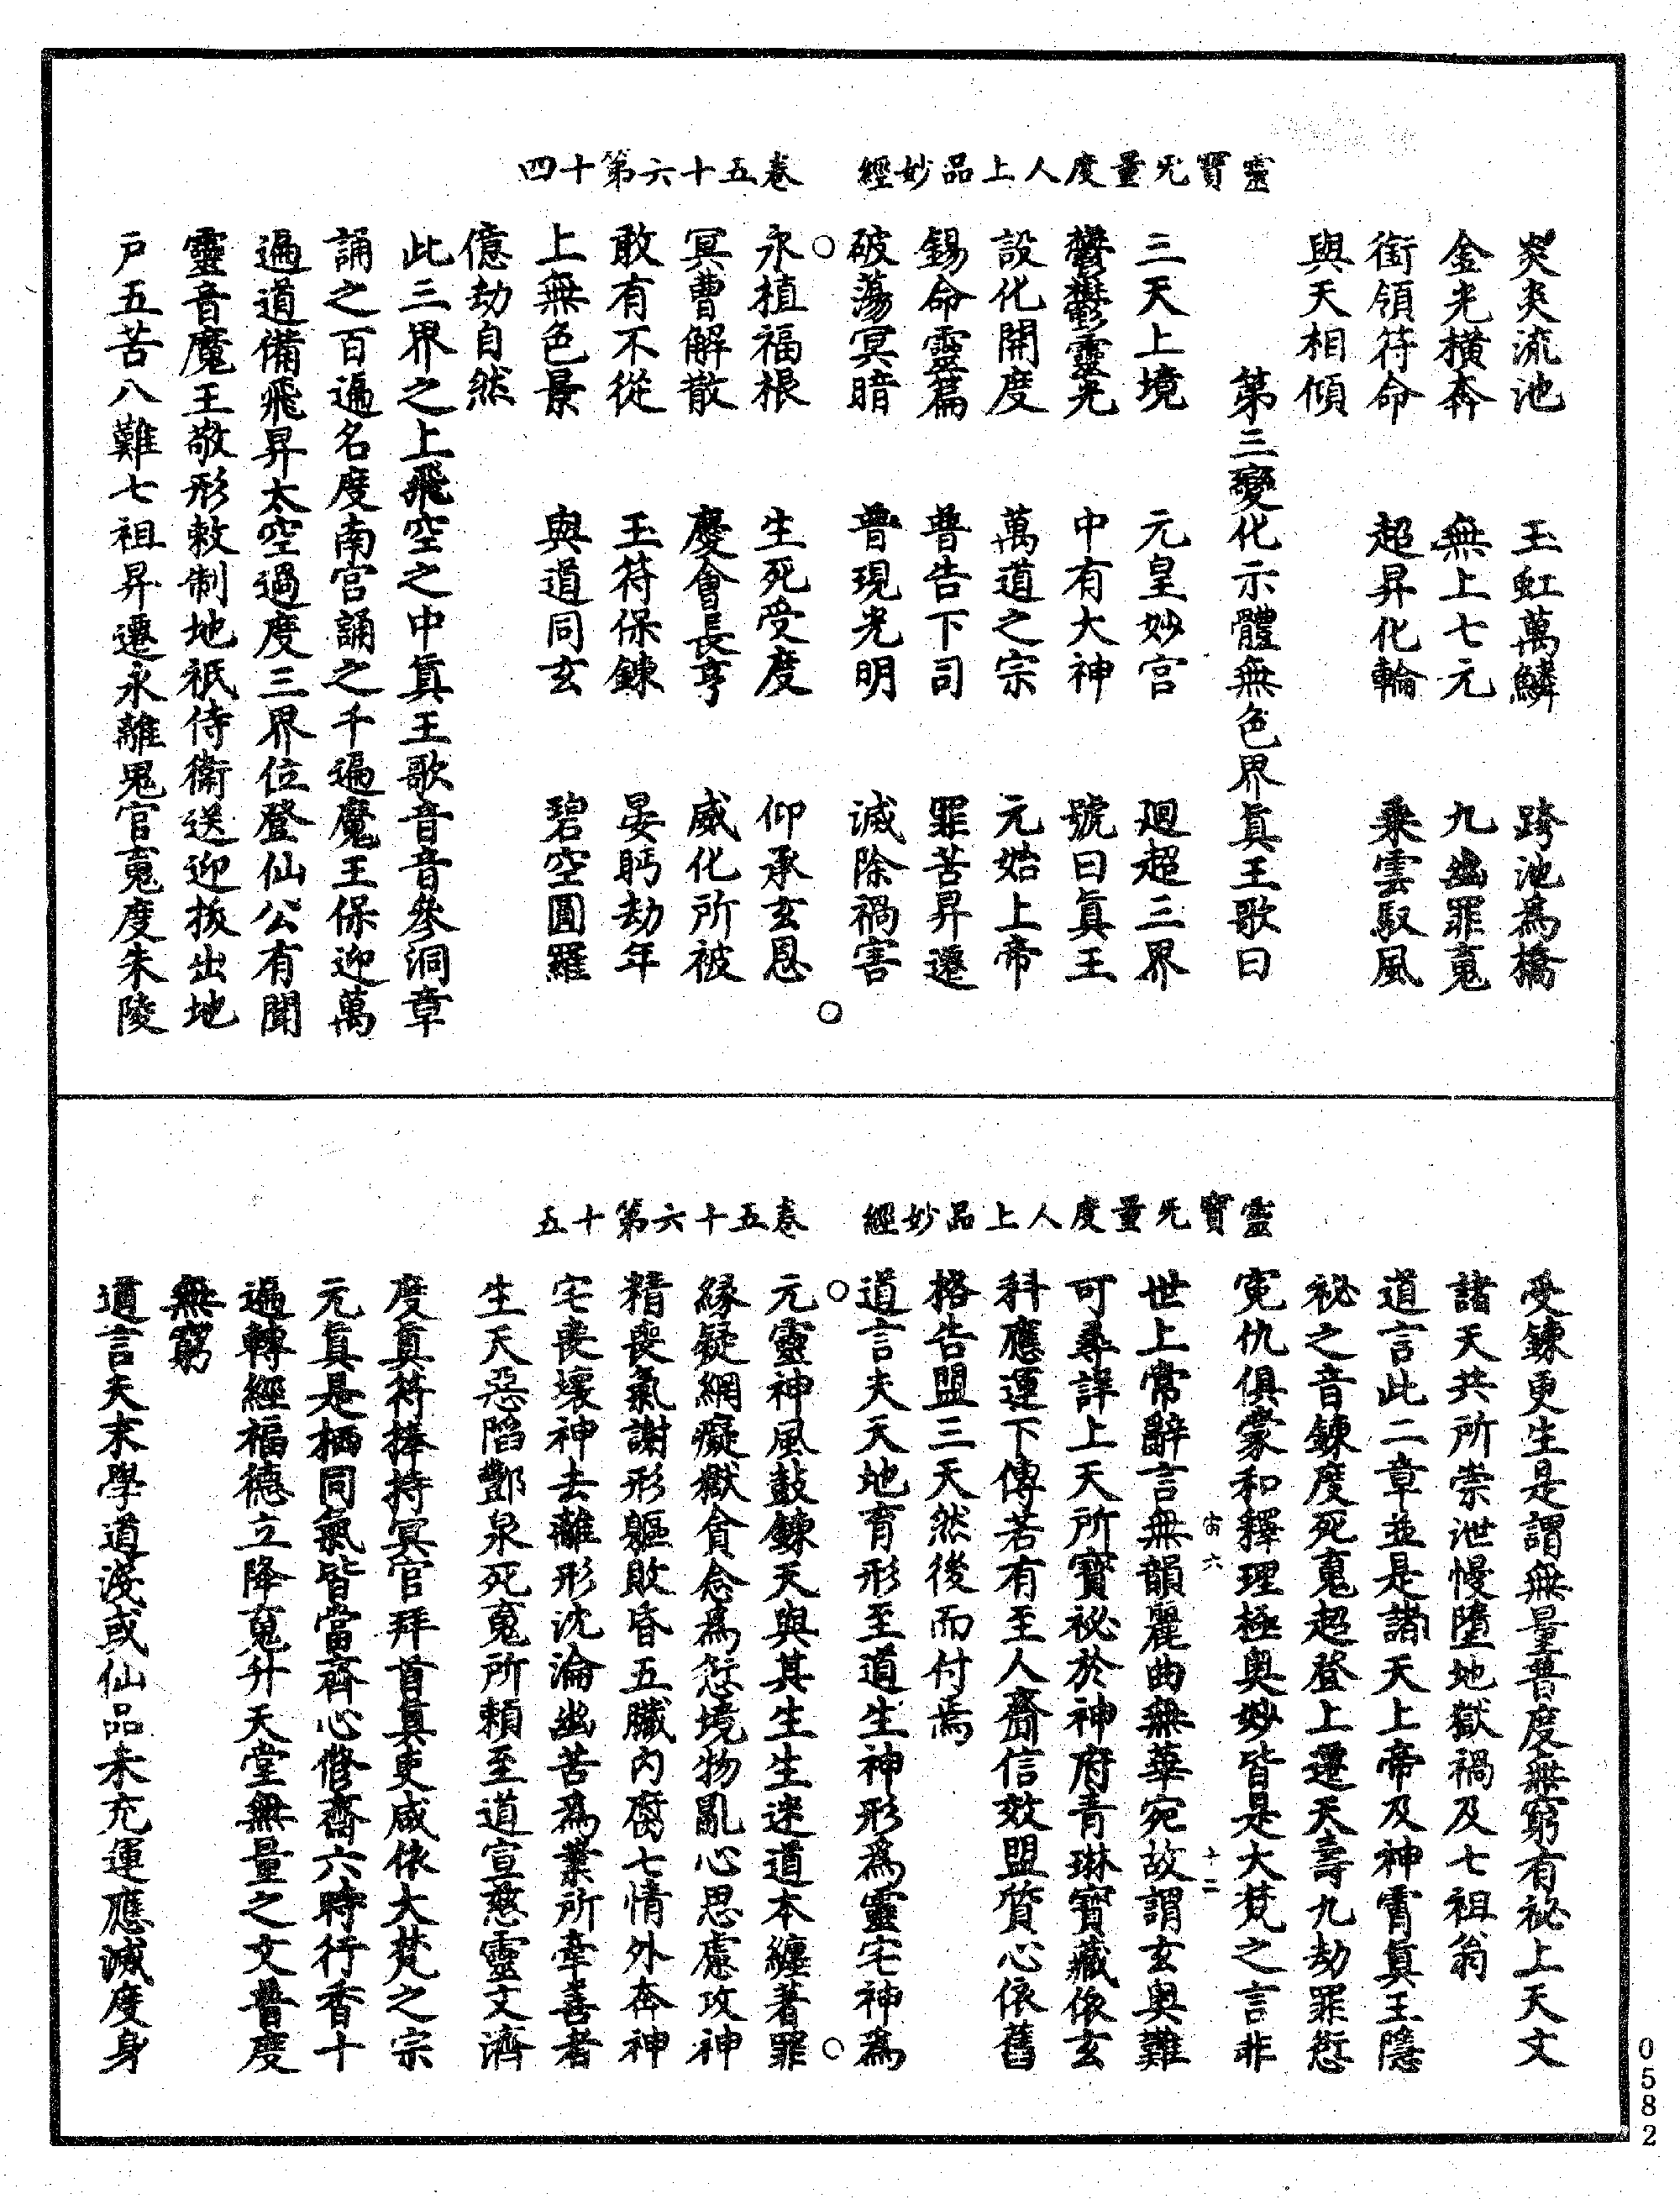 靈寶无量度人上品妙經　卷五十六第十四
炎炎流池　玉虹萬鱗　跨池為橋
金光橫奔　無上七元　九幽罪䰟
銜領符命　超昇化輪　乗雲馭風
與天相傾
第三變化示體無色界眞王歌曰
三天上境　元皇妙宫　廻超三界
鬱鬱靈光　中有大神　號曰眞王
設化開度　萬道之宗　元始上帝
錫命靈篇　普告下司　罪苦昇遷
破蕩冥暗　普現光明　滅除禍害
永植福根　生死受度　仰承玄恩
冥曹解散　慶會長亨　威化所被
敢有不從　玉符保錬　晏眄劫年
上無色景　與道同玄　碧空圓羅
億劫自然
此三界之上飛空之中眞王歌音音參洞章
誦之百遍名度南宫誦之千遍魔王保迎萬
遍道備飛昇太空過度三界位登仙公有聞
靈音魔王敬形敕制地祇侍衛送迎拔出地
戶五苦八難七祖昇遷永離鬼官䰟度朱陵
靈寶无量度人上品妙經　卷五十六第十五
受錬更生是謂無量普度無窮有祕上天文
諸天共所崇泄慢墮地獄禍及七祖翁
道言此二章並是諸天上帝及神霄眞王隱
祕之音錬度死䰟超登上遷天壽九劫罪愆
寃仇俱蒙和釋理極奥妙皆是大梵之言非
宙六　十二
世上常辭言無韻麗曲無華宛故謂玄奥難
可尋詳上天所寶祕於神府青琳寶藏依玄
科應運下傳若有至人齎信效盟質心依舊
格告盟三天然後而付焉
道言夫天地育形至道生神形為靈宅神為
元靈神風鼓錬天與其生生迷道本纏著罪
緣疑網癡獄貪念為愆境物亂心思慮攻神
精喪氣謝形軀敗昏五臟内腐七情外奔神
宅喪壞神去離形沈淪幽苦為業所牽善者
生天惡陷酆泉死䰟所頼至道宣慈靈文濟
度眞符捧持冥官拜首眞吏咸依大梵之宗
元眞是栖同氣皆當齊心修齋六時行香十
遍轉經福德立降䰟升天堂無量之文普度
無窮
道言夫末學道淺或仙品未充運應滅度身
0582